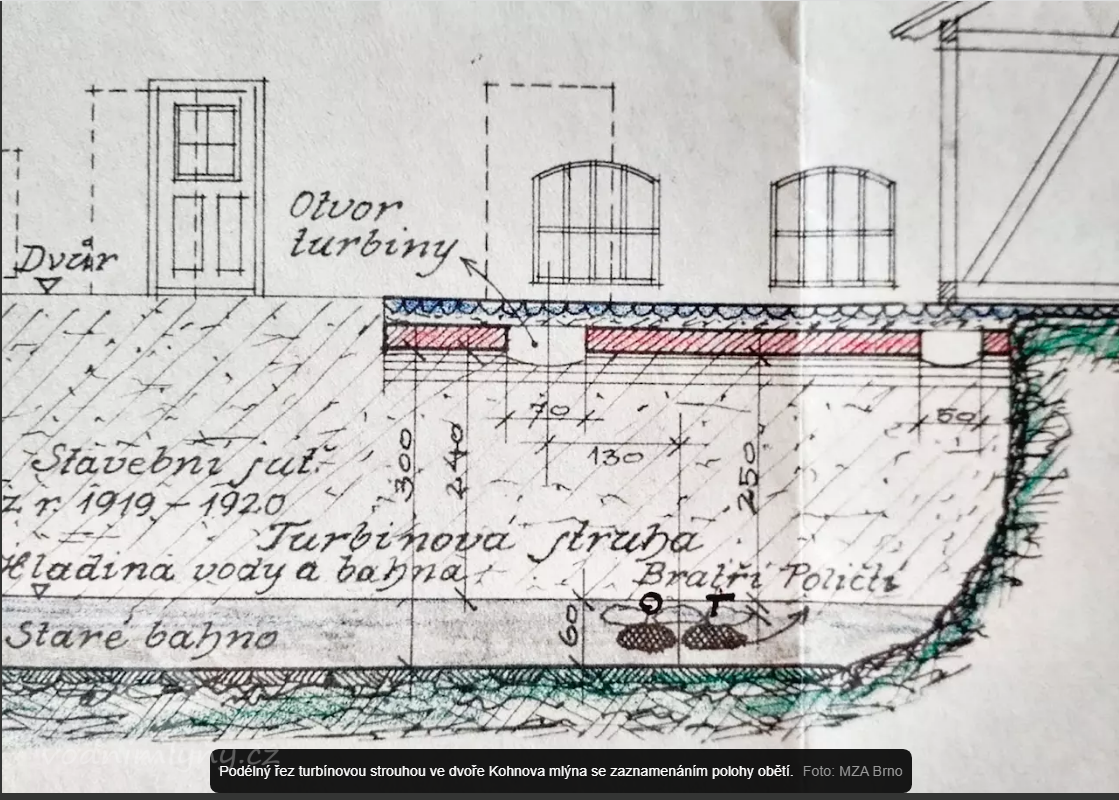 Otvor
turbiny
Dvůr
70
50
130
300
240
250
Stavební suť
z r. 1919 – 1920
Turbinová struha
Hladina vody a bahna
Bratři Poličtí
O T
60
Staré bahno
vodnimlyny.cz
Podélný řez turbínovou strouhou ve dvoře Kohnova mlýna se zaznamenáním polohy obětí. Foto: MZA Brno